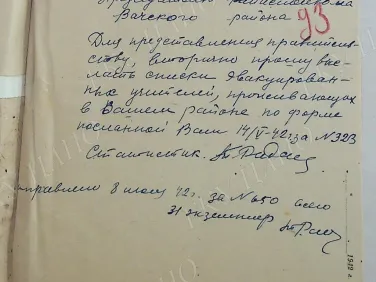 Вачского района
93
Для представления правитель-
ству, вторично прошу выс-
лать списки эвакуирован-
ных учителей, проживающих
в Вашем районе по форме
посланной Вам 14/V-42г. за №323
Статистик.
8 июля 42г. за №650 всего
31 экземпляр